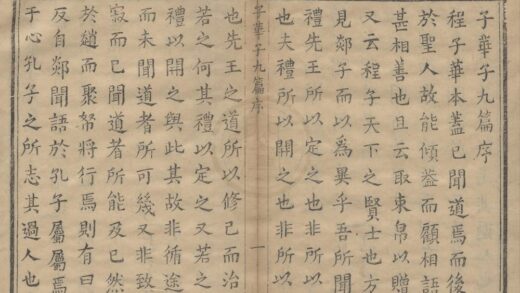 子華子九篇序
程子華本蓋已聞道焉而後
於聖人故能傾蓋而顧相語
甚相善也且云取束帛以贈
又云程子天下之賢士也方
見郯子而以爲異乎吾所聞
禮先王所以定之也非所以
也夫禮所以開之也非所以
子華子九篇序
一
也先王之道所以修己而治
若之何其禮以定之又若之
禮以開之與此其故非循途
而未聞道者所可幾又非致
寂而已聞道者所能及已然
於趙而聚帑將行焉則有曰
反自郯聞語於孔子屬屬焉
于心孔子之所志其過人也